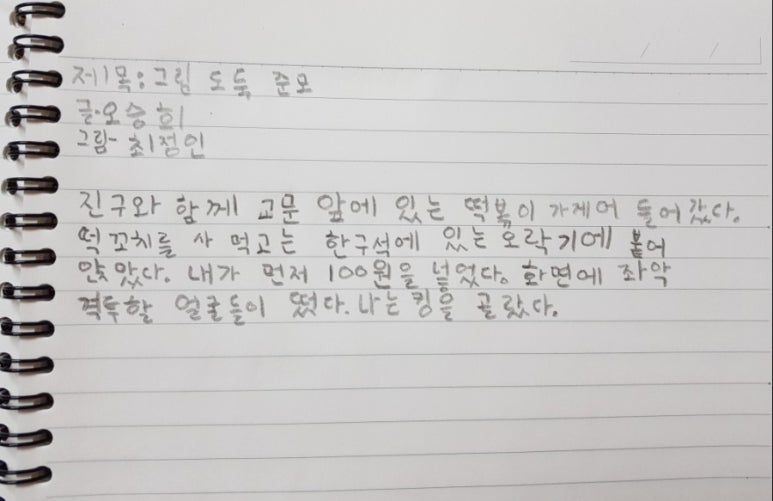 제목:그림 도둑 준모
글·오승희
그림- 최정인
진구와 함께 교문 앞에 있는 떡볶이 가게에 들어갔다.
떡 꼬치를 사 먹고는 한구석에 있는 오락기에 붙어
앉았다. 내가 먼저 100원을 넣었다. 화면에 좌악
격투할 얼굴들이 떴다. 나는 킹을 골랐다.